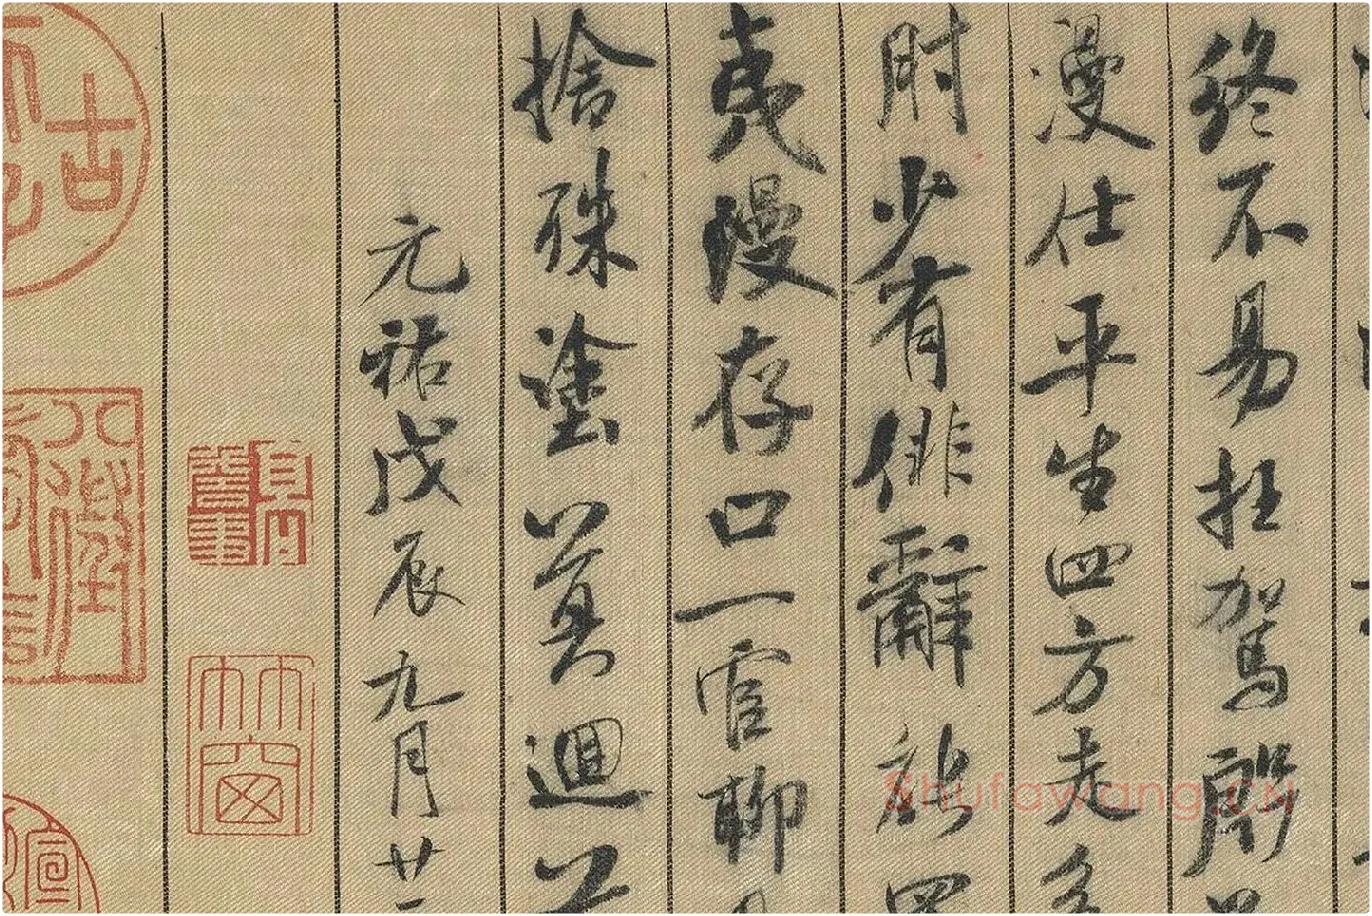 終不易枉駕殷
漫仕平生四方走多
肘少有俳辭能
夷漫存口一官聊
捨殊塗莫迴
元祐戊辰九月廿
竹窗
Shufawang.CN